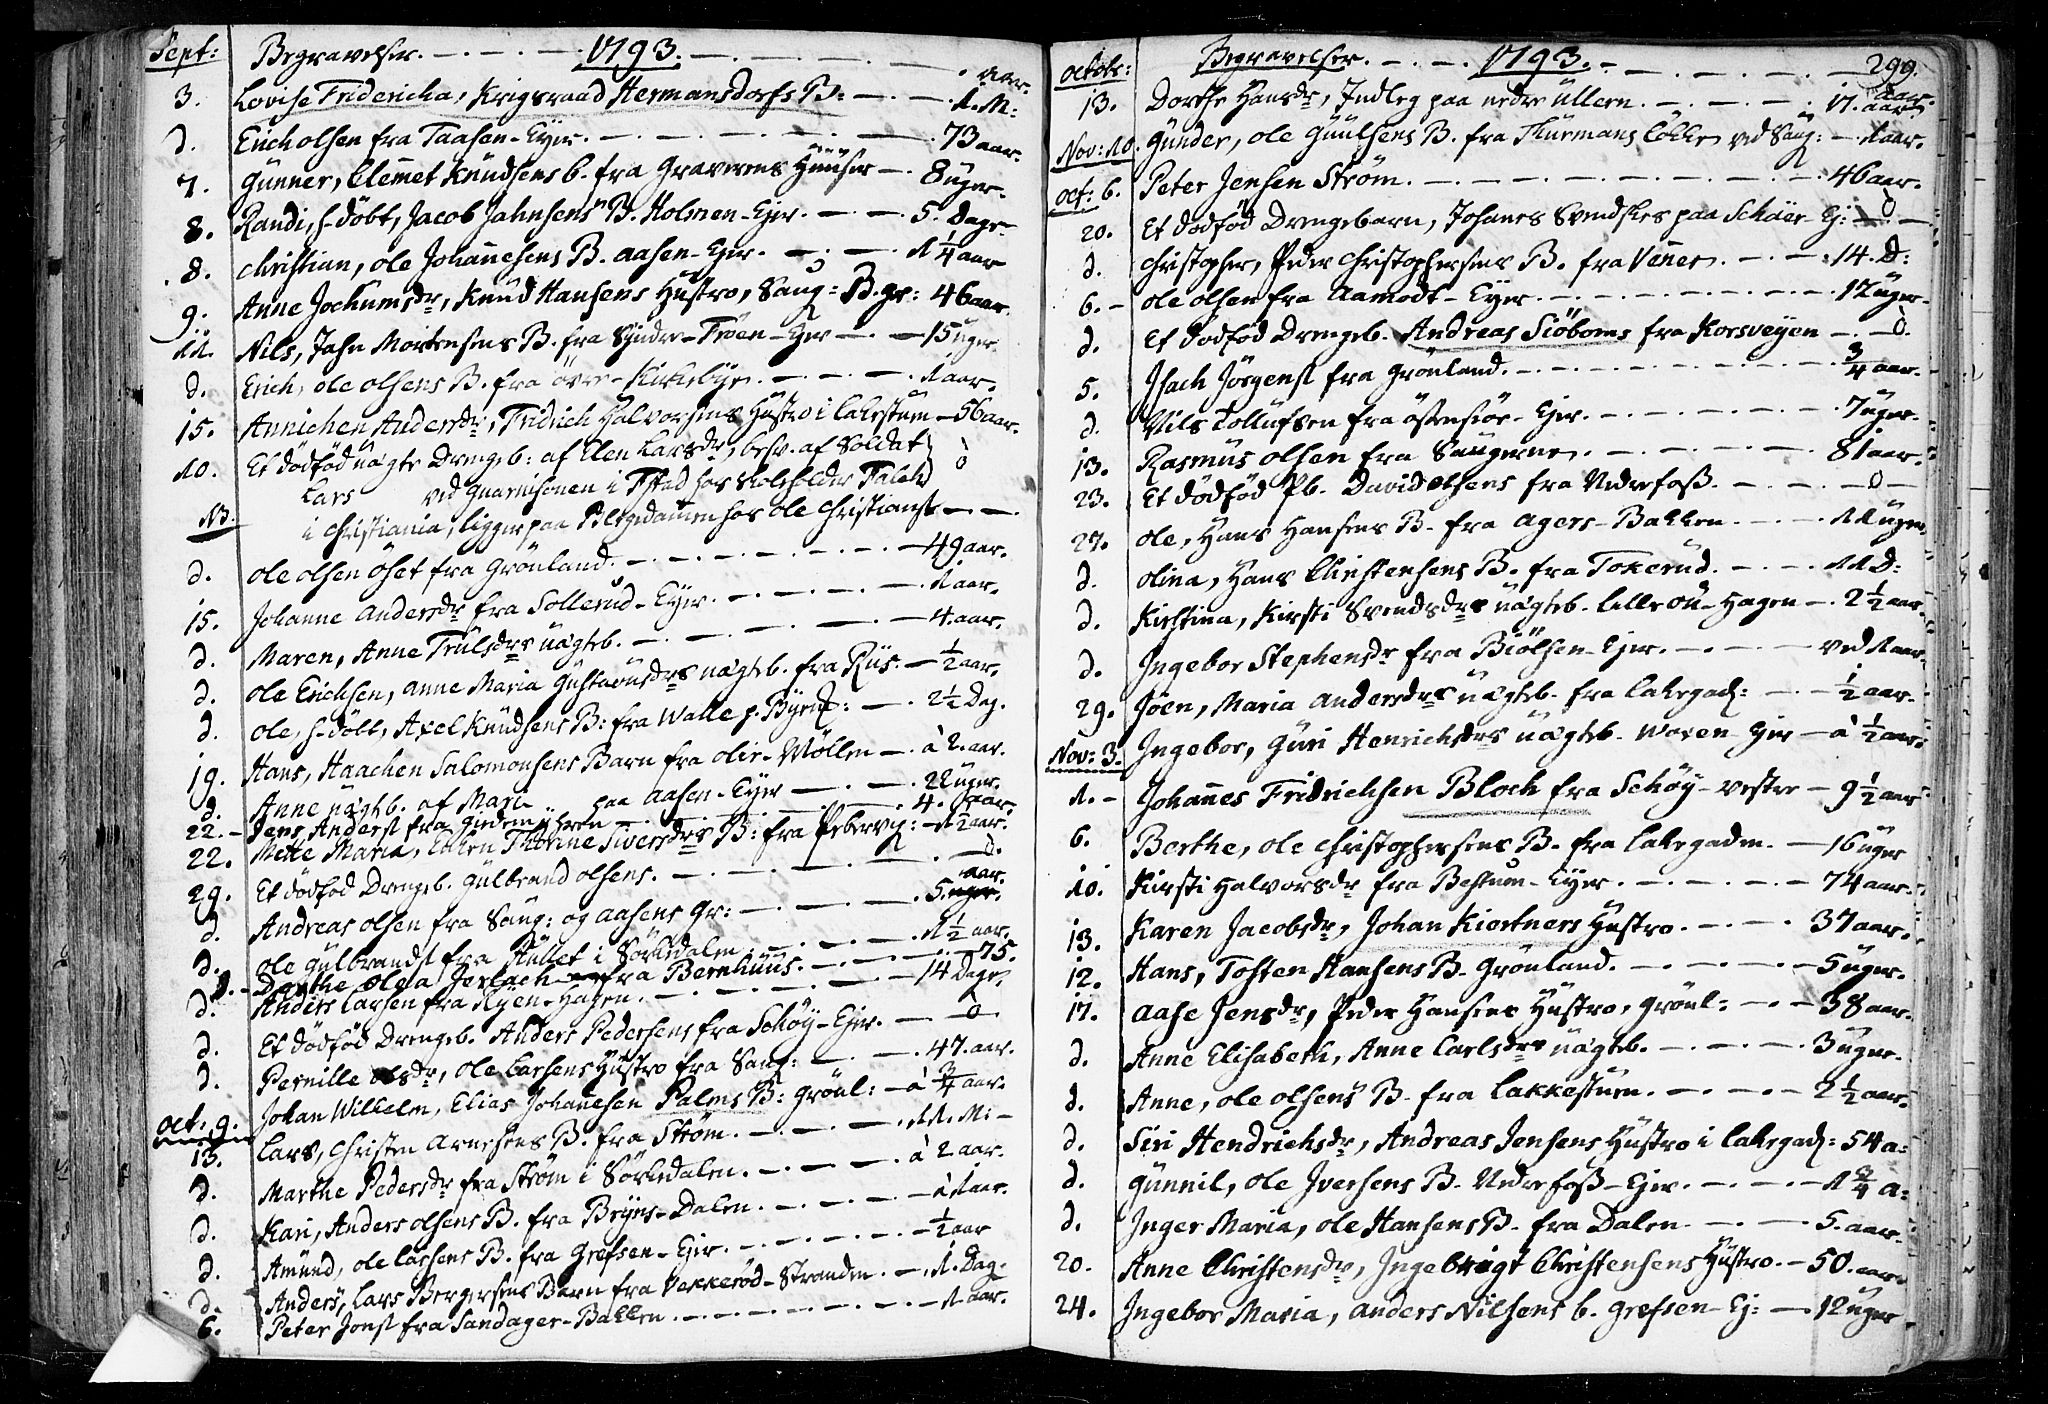 Sept: Begravelser. 1793. aar.
3. Lovise Fridericha, Krigsraad Hermansdorfs B: 1. M:
d. Erich olsen fra Taasen-Ejer. 73 aar.
7. Gunner, Clemet Knudsens b. fra Graverens Huuser 8 uger.
8. Randi, h-döbt, Jacob Jahnsens B. Holmen-Ejer. 5. Dage
8. Christian, ole Johannesens B. aasen-Ejer. 1 1/4 aar
9. Anne Jochumsdr, Knud Hansens Hustro, Saug: B.gr: 46 aar.
11. Nils, Jahn Mortensens B. fra Syndre-Tröen-Ejer 15 uger.
d. Erich, ole olsens B. fra övre-Kirkebye. 1 aar.
15. Annichen Andersdr, Fridrich Halvorsens Hustro i Lakestum 56 aar.
10. Et dödföd uægte Drengeb: af Elen Larsdr, besv. af Soldat
Lars ved Guarnisonen i Fstad hos
NB. i Christiania, ligger paa Blegedamen hos ole Christians
d. ole olsen öset fra Grönland. 49 aar.
15. Johanne Andersdr fra Sollerud-Ejer. 1 aar.
d. Maren, Anne Trulsdrs uægteb. 4. aar.
d. ole Erichsen, Anne Maria Gustavusdrs uægteb. fra Riis. 1/2 aar.
d. ole, h-döbt, Axel Knudsens B: fra Walle p. 2 1/2 Dag.
19. Hans, Haachen Salomonsens Barn fra olie-Möllen à 2. aar.
d. Anne uægteb. af Mari paa Aasen-Ejer 22 uger.
22. Jens Anderst fra 4. aar.
22. Mette Maria, Thorine Siversdrs B: fra Pebervig: 1 1/2 aar.
29. Et dödföd Drengeb. Gulbrand olsens. 0.
d. Andreas olsen fra Saug: og Aasens Gr: 5. uger. aar.
d. ole Gulbrandst fra Hullet i Sörkedalen. 1 1/2 aar.
d. Dorthe olea Gerlach fra Bernhuus. 75.
d. Anders Larsen fra Ryen-Hagen. 14 Dage.
d. Et dödföd Drengeb. Anders Pedersens fra Schöy-Ejer. 0
d. Pernille olsdr, ole Larsens Hustro fra Saug: 47. aar.
Oct. 9. Johan Wilhelm, Elias Johannesen Palms B: Grönl: à 3/4 aar.
13. Lars, Christen Arnesens B. fra Ström. 11. M:
d. Marthe Pedersdr fra Ström i Sörkedalen. à 2 aar.
d. Kari, Anders olsens B. fra Bryns-Dalen. à 1 aar.
d. Amund, ole Larsens B. fra Grefsen-Ejer. 1/2 aar
d. Anders, Lars Bergersens Barn fra Vekkeröd-Stranden. 1. Dag.
6. Peter Jonst fra Sandager-Bakken. 1. aar.
octobr: Begravelser. 1793. 299.
13. Dorthe Hansdr, Indleg paa nedre Ullern. 17. aar.
Nov: 10. Gunder, ole Guulsens B. fra Thurmans Lökke ved Saug: 1 aar.
oct: 6. Peter Jensen Ström. 46 aar.
20. Et dödföd Drengebarn, Johanes Svendskes paa Schöier-Ej: 0
d. Christopher, Peder Christophersens B. fra Venner. 14. D:
6. ole olsen fra Aamodt-Ejer. 12 uger.
d. Et dödföd Drengeb. Andreas Siöboms fra Korsveyen 0.
5. Isach Jörgenst fra Grönland. 3/4 aar.
d. Nils Tollufsen fra östensiöe-Ejer. 7 uger.
13. Rasmus olsen fra Saugerne. 81 aar.
23. Et dödföd Pb. David olsens fra Nedrefoss. 0
27. ole, Hans Hansens B. fra Agers-Bakken. 11 uger.
d. olina, Hans Christensens B. fra Tokerud. 11 D:
d. Kirstina, Kirsti Svendsdrs uægteb. Lilleou-Hagen 2 1/2 aar.
d. Ingebor Stephensdr fra Biölsen-Ejer. ved 1 aar.
29. Jöen, Maria Andersdrs uægteb. fra Lakegad: 1/2 aar.
Nov: 3. Ingebor, Guri Henrichsdrs uægteb. Woxen Ejer à 1/2 aar.
1. Johannes Fridrichsen Bloch fra Schöy-vestre 9 1/2 aar
6. Berthe, ole Christophersens B. fra Lakegaden. 16 uger
10. Kirsti Halvorsdr fra Bestum-Ejer. 74 aar.
13. Karen Jacobsdr, Johan Kiertners Hustro. 37 aar.
12. Hans, Tosten Hansens B. Grönland. 5 uger.
17. Aase Jensdr, Peder Hansens Hustro, Grönl: 38 aar.
d. Anne Elisabeth, Anne Carlsdrs uægteb. 3 uger.
d. Anne, ole olsens B. fra Lakkestum. 2 1/2 aar.
d. Siri Hendrichsdr, Andreas Jensens Hustro i Lakegad: 54 a:
d. Gunnil, ole Iversens B. Nedrefoss-Ejer. 1 3/4 a:
d. Inger Maria, ole Hansens B. fra Dalen. 5. aar.
20. Anne Christensdr, Ingebrigt Christensens Hustro. 50. aar.
24. Ingebor Maria, Anders Nilsens b. Grefsen-Ej: 12 uger